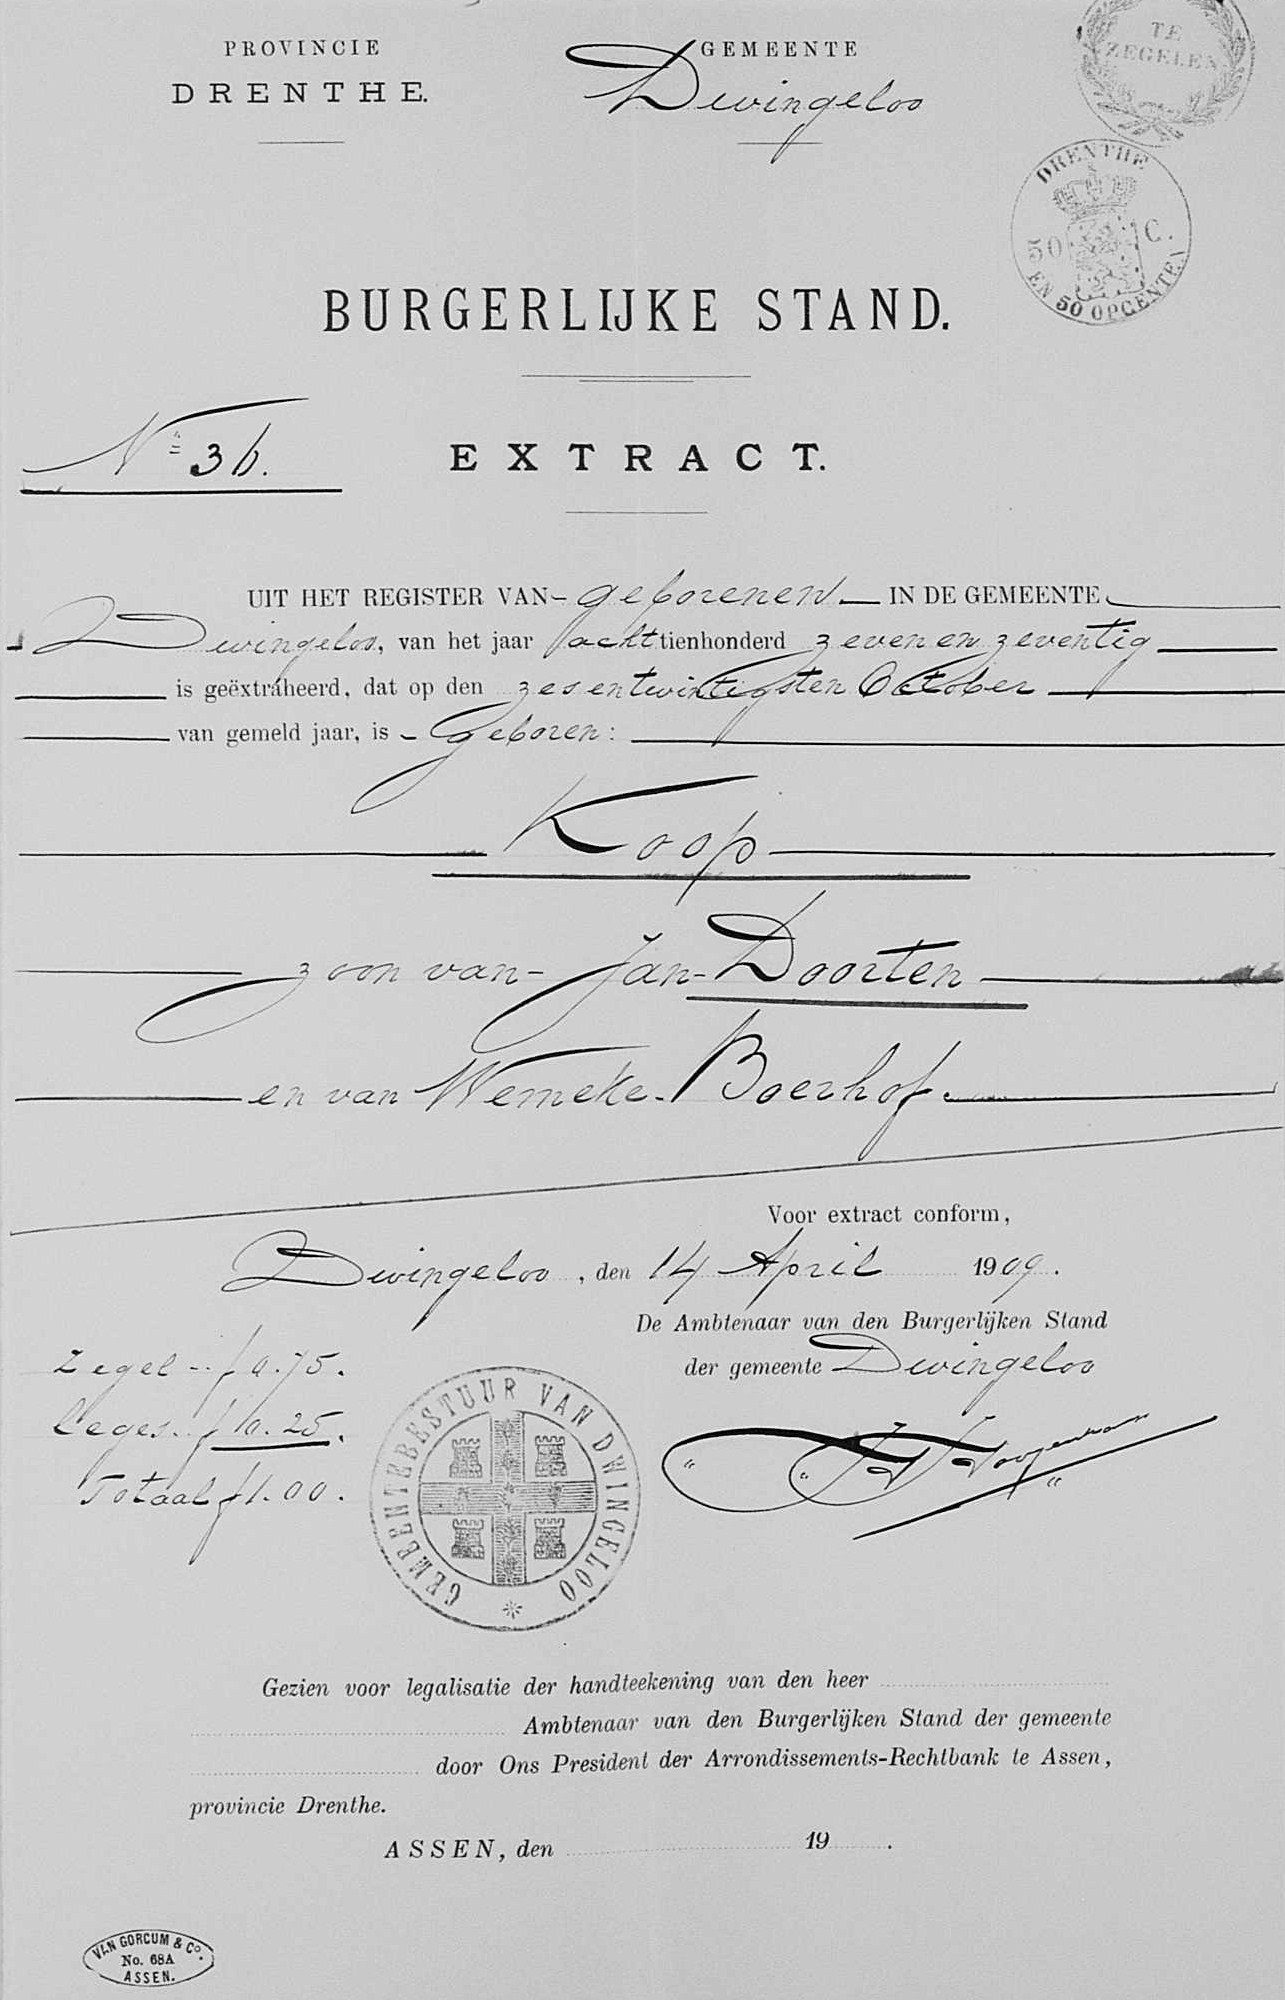 PROVINCIE
DRENTHE.
GEMEENTE
Dwingeloo
TE
ZEGELEN
DRENTHE
50 C.
EN 50 OPCENTEN
BURGERLIJKE STAND.
No 36.
EXTRACT.
UIT HET REGISTER VAN - geborenen - IN DE GEMEENTE
Dwingeloo, van het jaar achttienhonderd zevenenzeventig
is geëxtraheerd, dat op den zesentwintigsten October
van gemeld jaar, is - Geboren:
Koop
zoon van - Jan - Doorten
en van Wemeke - Boerhof.
Voor extract conform,
Dwingeloo, den 14 April 1909.
De Ambtenaar van den Burgerlijken Stand
der gemeente Dwingeloo
Zegel -- f 0.75.
Leges.. f 0.25.
Totaal f 1.00.
GEMEENTEBESTUUR VAN DWINGELOO
Gezien voor legalisatie der handteekening van den heer
Ambtenaar van den Burgerlijken Stand der gemeente
door Ons President der Arrondissements-Rechtbank te Assen,
provincie Drenthe.
ASSEN, den 19 .
VAN GORCUM & Co.
No. 68A
ASSEN.